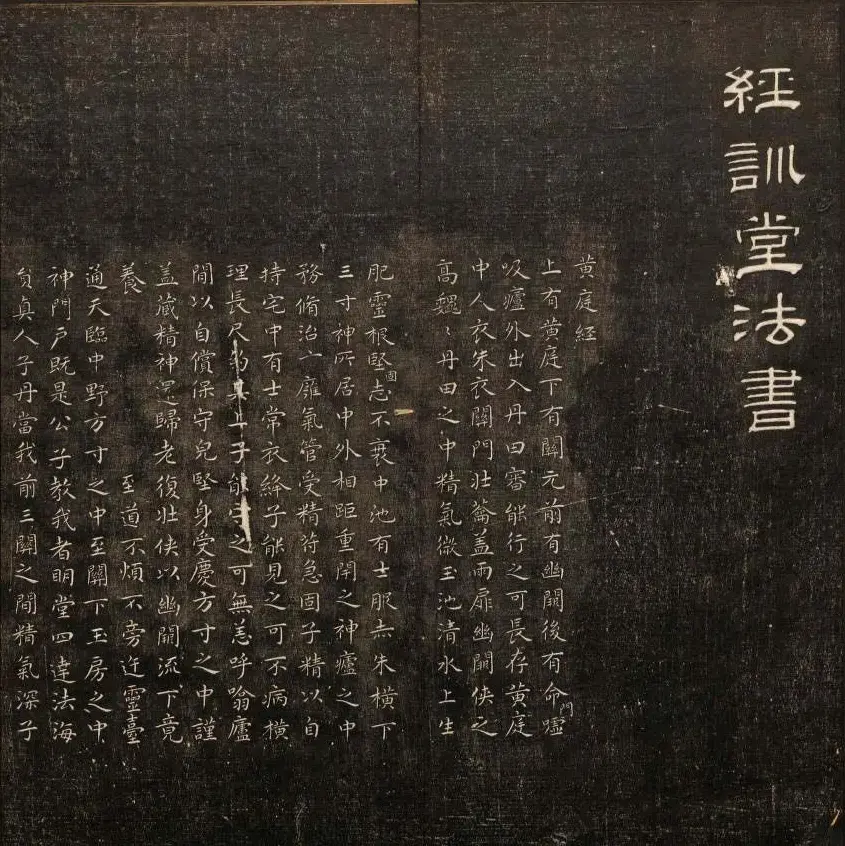 經訓堂法書
黃庭經
上有黃庭下有關元前有幽關後有命門噓
吸廬外出入丹田審能行之可長存黃庭
中人衣朱衣關門壯蘥蓋兩扉幽關俠之
高巍〻丹田之中精氣微玉池清水上生
肥靈根堅固志不衰中池有士服赤朱橫下
三寸神所居中外相距重閉之神廬之中
務脩治玄靡氣管受精苻急固子精以自
持宅中有士常衣絳子能見之可不病橫
理長尺約其上子能守之可無恙呼噏廬
間以自償保守兒堅身受慶方寸之中謹
蓋藏精神還歸老復壯俠以幽關流下竟
養 至道不煩不旁迕靈臺
通天臨中野方寸之中至關下玉房之中
神門戶既是公子教我者明堂四達法海
員真人子丹當我前三關之間精氣深子